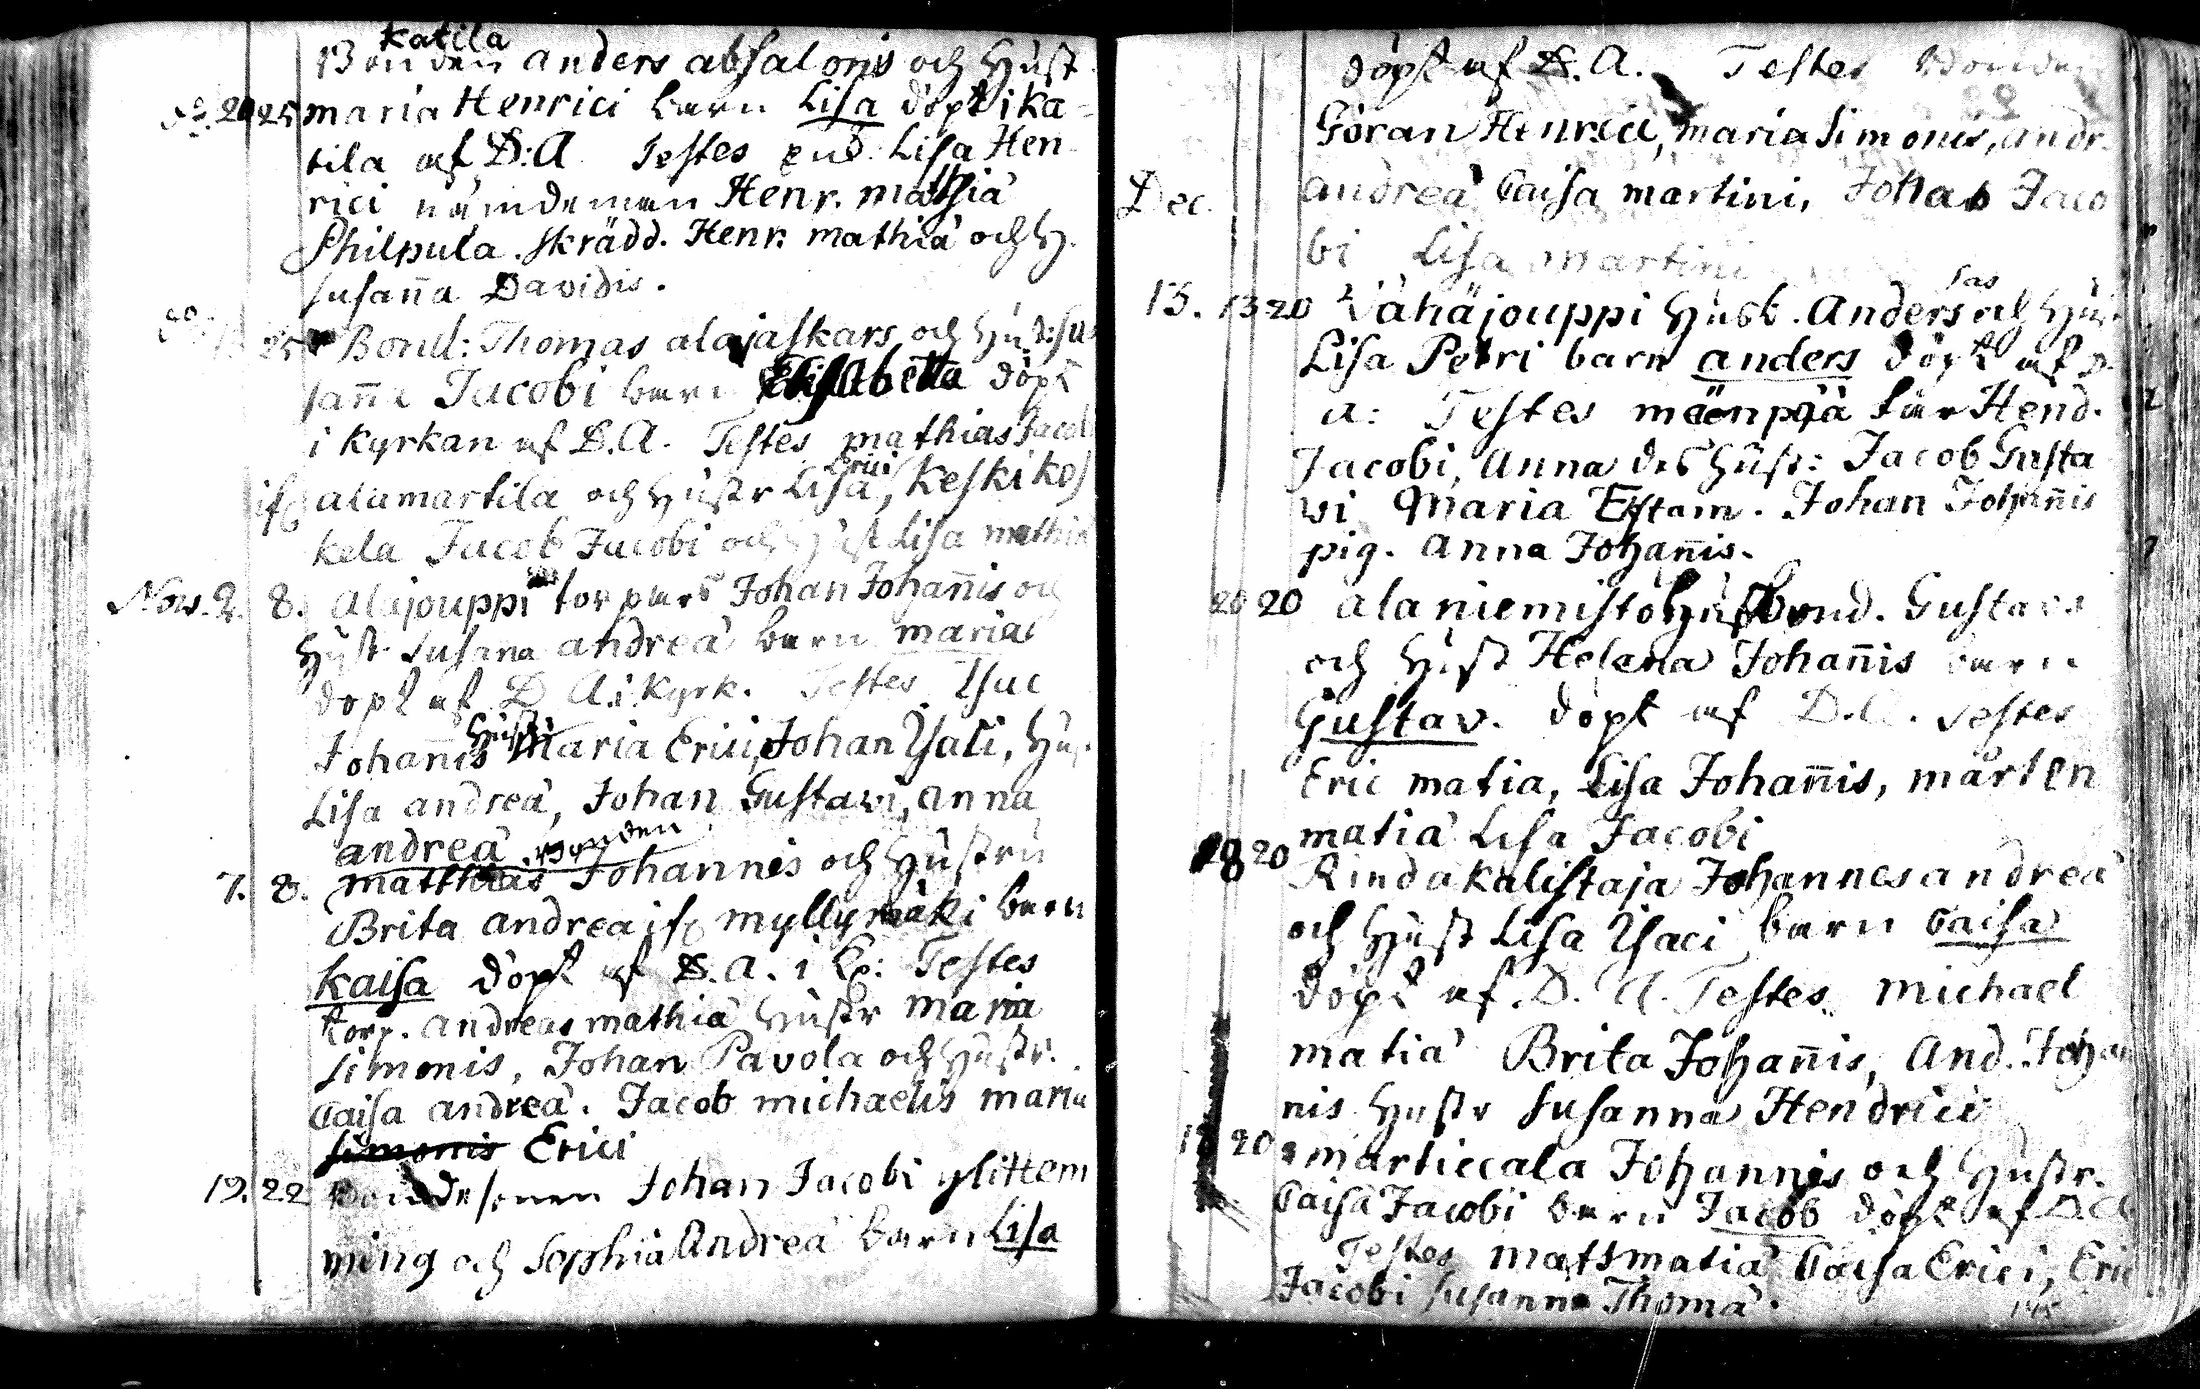 Katila
Bonden anders absalonis och Hust
20 25 maria Henrici barn Lisa döpt i ka-
tila af D:A Testes Lisa Hen
rici nämdeman Henr. mathiä
Philpula. skrädd. Henr. mathiä och H.
susaña Davidis.
25 Bond: Thomas alajaskars och Hust: su
sañа Jacobi barn Elisabetta döpt
i kyrkan af D.A. Testes mathias Jacobi
Erici
ifr alamartila och Hustr Lisa, Keski kos
kela Jacob Jacobi och Hust Lisa mathiä
Nov. 2. 8. Alajouppi torpars Johan Johañis och
Hust susana andreä barn maria
döpt af D A. i. kyrk. Testes Isac
Hustr
Johañis Maria Erici, Johan Isaci, Hus
Lisa andreä, Johan Gustavi, anna
andreä bonden
7. 8. matthias Johannis och Hustru
Brita andrea ifr myllymäki barn
Kaisa döpt af D.A. i K: Testes
torp. andreas mathiä Hustr maria
simonis, Johan Pavola och Hustr.
Caisa andreä. Jacob michaelis maria
simonis Erici
19. 22 Bondesonen Johan Jacobi glittem
ming och Sophia Andreä barn Lisa
döpt af D.A. Testes bonden
Göran Henrici, maria Simonis, andr.
Dec. andreä Caisa martini, Johan Jaco
bi Lisa martini
sas
13. 13 20 Vähäjouppi Husb. Anders och Hust
Lisa Petri barn anders döpt af D.
A: Testes mäenpää Hend.
Jacobi, Anna des Hust: Jacob Gusta
vi Maria Eftam. Johan Johañis
pig. Anna Johañis.
20 20 alaniemistö Husbond. Gustavs
och Hust Helena Johañis barn
Gustav. döpt af D.A. Testes
Eric matia, Lisa Johañis, mårten
matiä Lisa Jacobi
18 20 Rindakalistaja Johannes andreä
och Hust Lisa Isaci barn Caisa
döpt af. D. A. Testes michael
matiä Brita Johañis, And. Johan
nis Hustr susanna Hendrici
20 marticcala Johannis och Hustr.
Caisa Jacobi barn Jacob döpt af D.A
Testes matsmatiä Caisa Erici, Eric
Jacobi susanna Thomä.